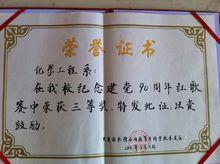 荣誉证书
化学工程系：
在我校纪念建党90周年红歌
赛中荣获三等奖，特发此证，以资
鼓励。